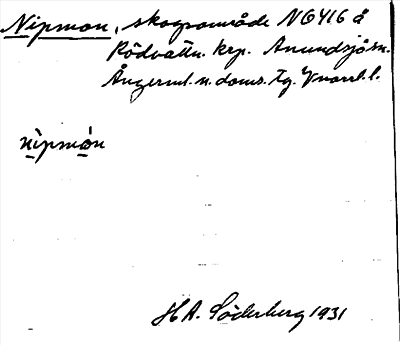 Nipmon, skogsområde N6416 å
Rödvattn. krp. Anundsjö sn.
Ångerml. n. doms. tg. Vnorrl. l.
nìpmón
H A. Söderberg 1931